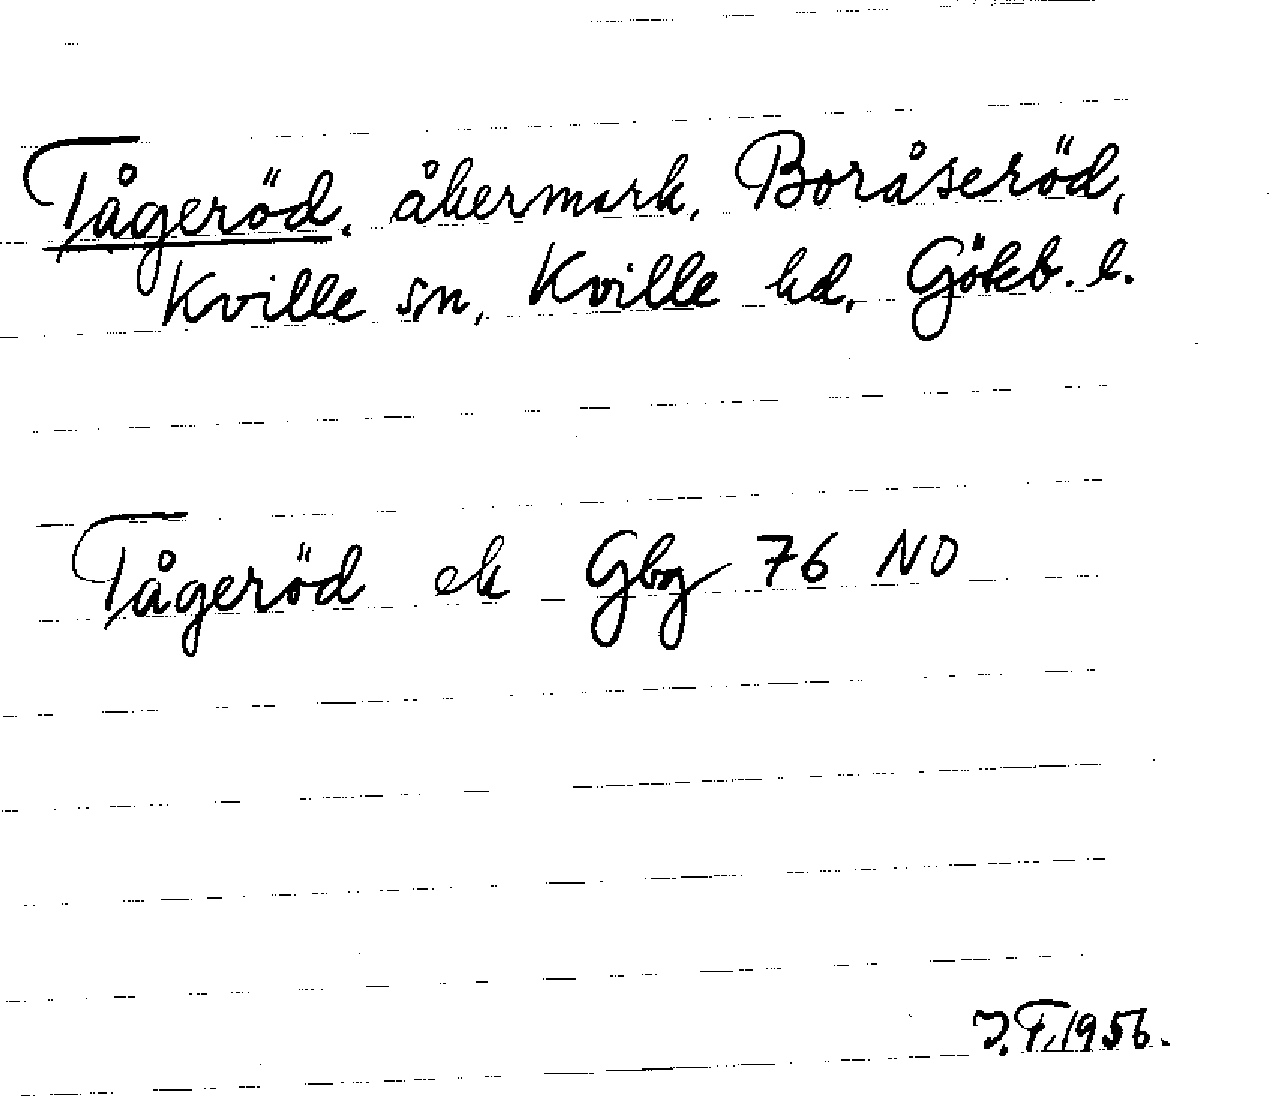 Tågeröd, åkermark, Boråseröd,
Kville sn, Kville hd, Göteb. l.
Tågeröd ek Gbg 76 NO
J.F. 1956.